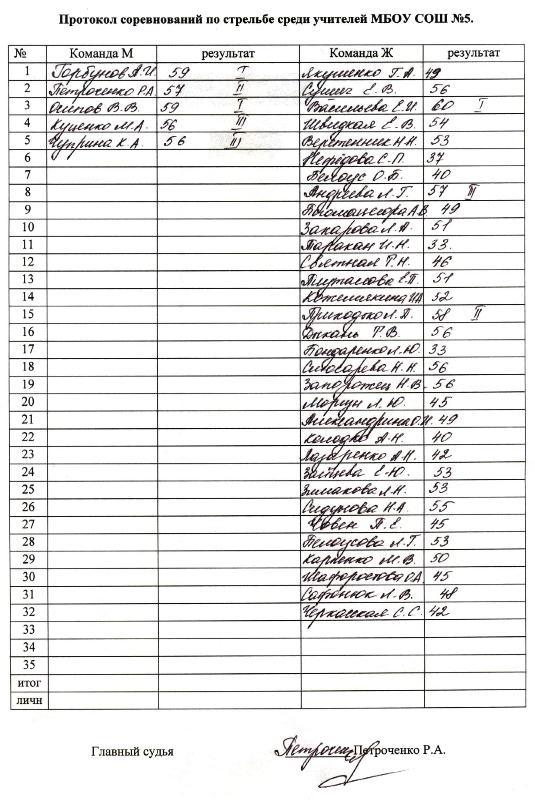 Протокол соревнований по стрельбе среди учителей МБОУ СОШ №5.
№ Команда М результат Команда Ж результат
1 Горбунов А.И. 59 I Якушенко Г.А. 49
2 Петроченко Р.А. 57 II Сушич Е.В. 56
3 Осипов В.В. 59 I Васильева Е.И. 60 I
4 Куценко М.А. 56 III Швидкая Е.В. 54
5 Чуприна К.А. 56 III Веретенник Н.Н. 53
6 Нефёдова С.П. 37
7 Белоус О.Б. 40
8 Андреева Л.Г. 57 III
9 А.В. 49
10 Захарова Л.А. 51
11 Таракан И.Н. 33.
12 Святная Т.Н. 46
13 Е.П. 51
14 Кожемякина 32
15 Приходько Л.П. 58 II
16 Дикань Т.В. 56
17 Бондаренко Л.Ю. 33
18 Слюсарева Н.Н. 56
19 Запорожец Н.В. 56
20 Моргун Л.Ю. 45
21 Александрина О.Н. 49
22 Колодко А.Н. 40
23 Лазаренко А.Н. 42
24 Зайцева Е.Ю. 53
25 Зимакова Л.Н. 53
26 Сидунова Н.А. 55
27 Човен П.Е. 45
28 Белоусова Л.Т. 53
29 Карпенко М.В. 50
30 Шафоростова О.А. 45
31 Сафонюк Л.В. 48
32 Черкасская С.С. 42
33
34
35
итог
личн
Главный судья Петроченко Петроченко Р.А.